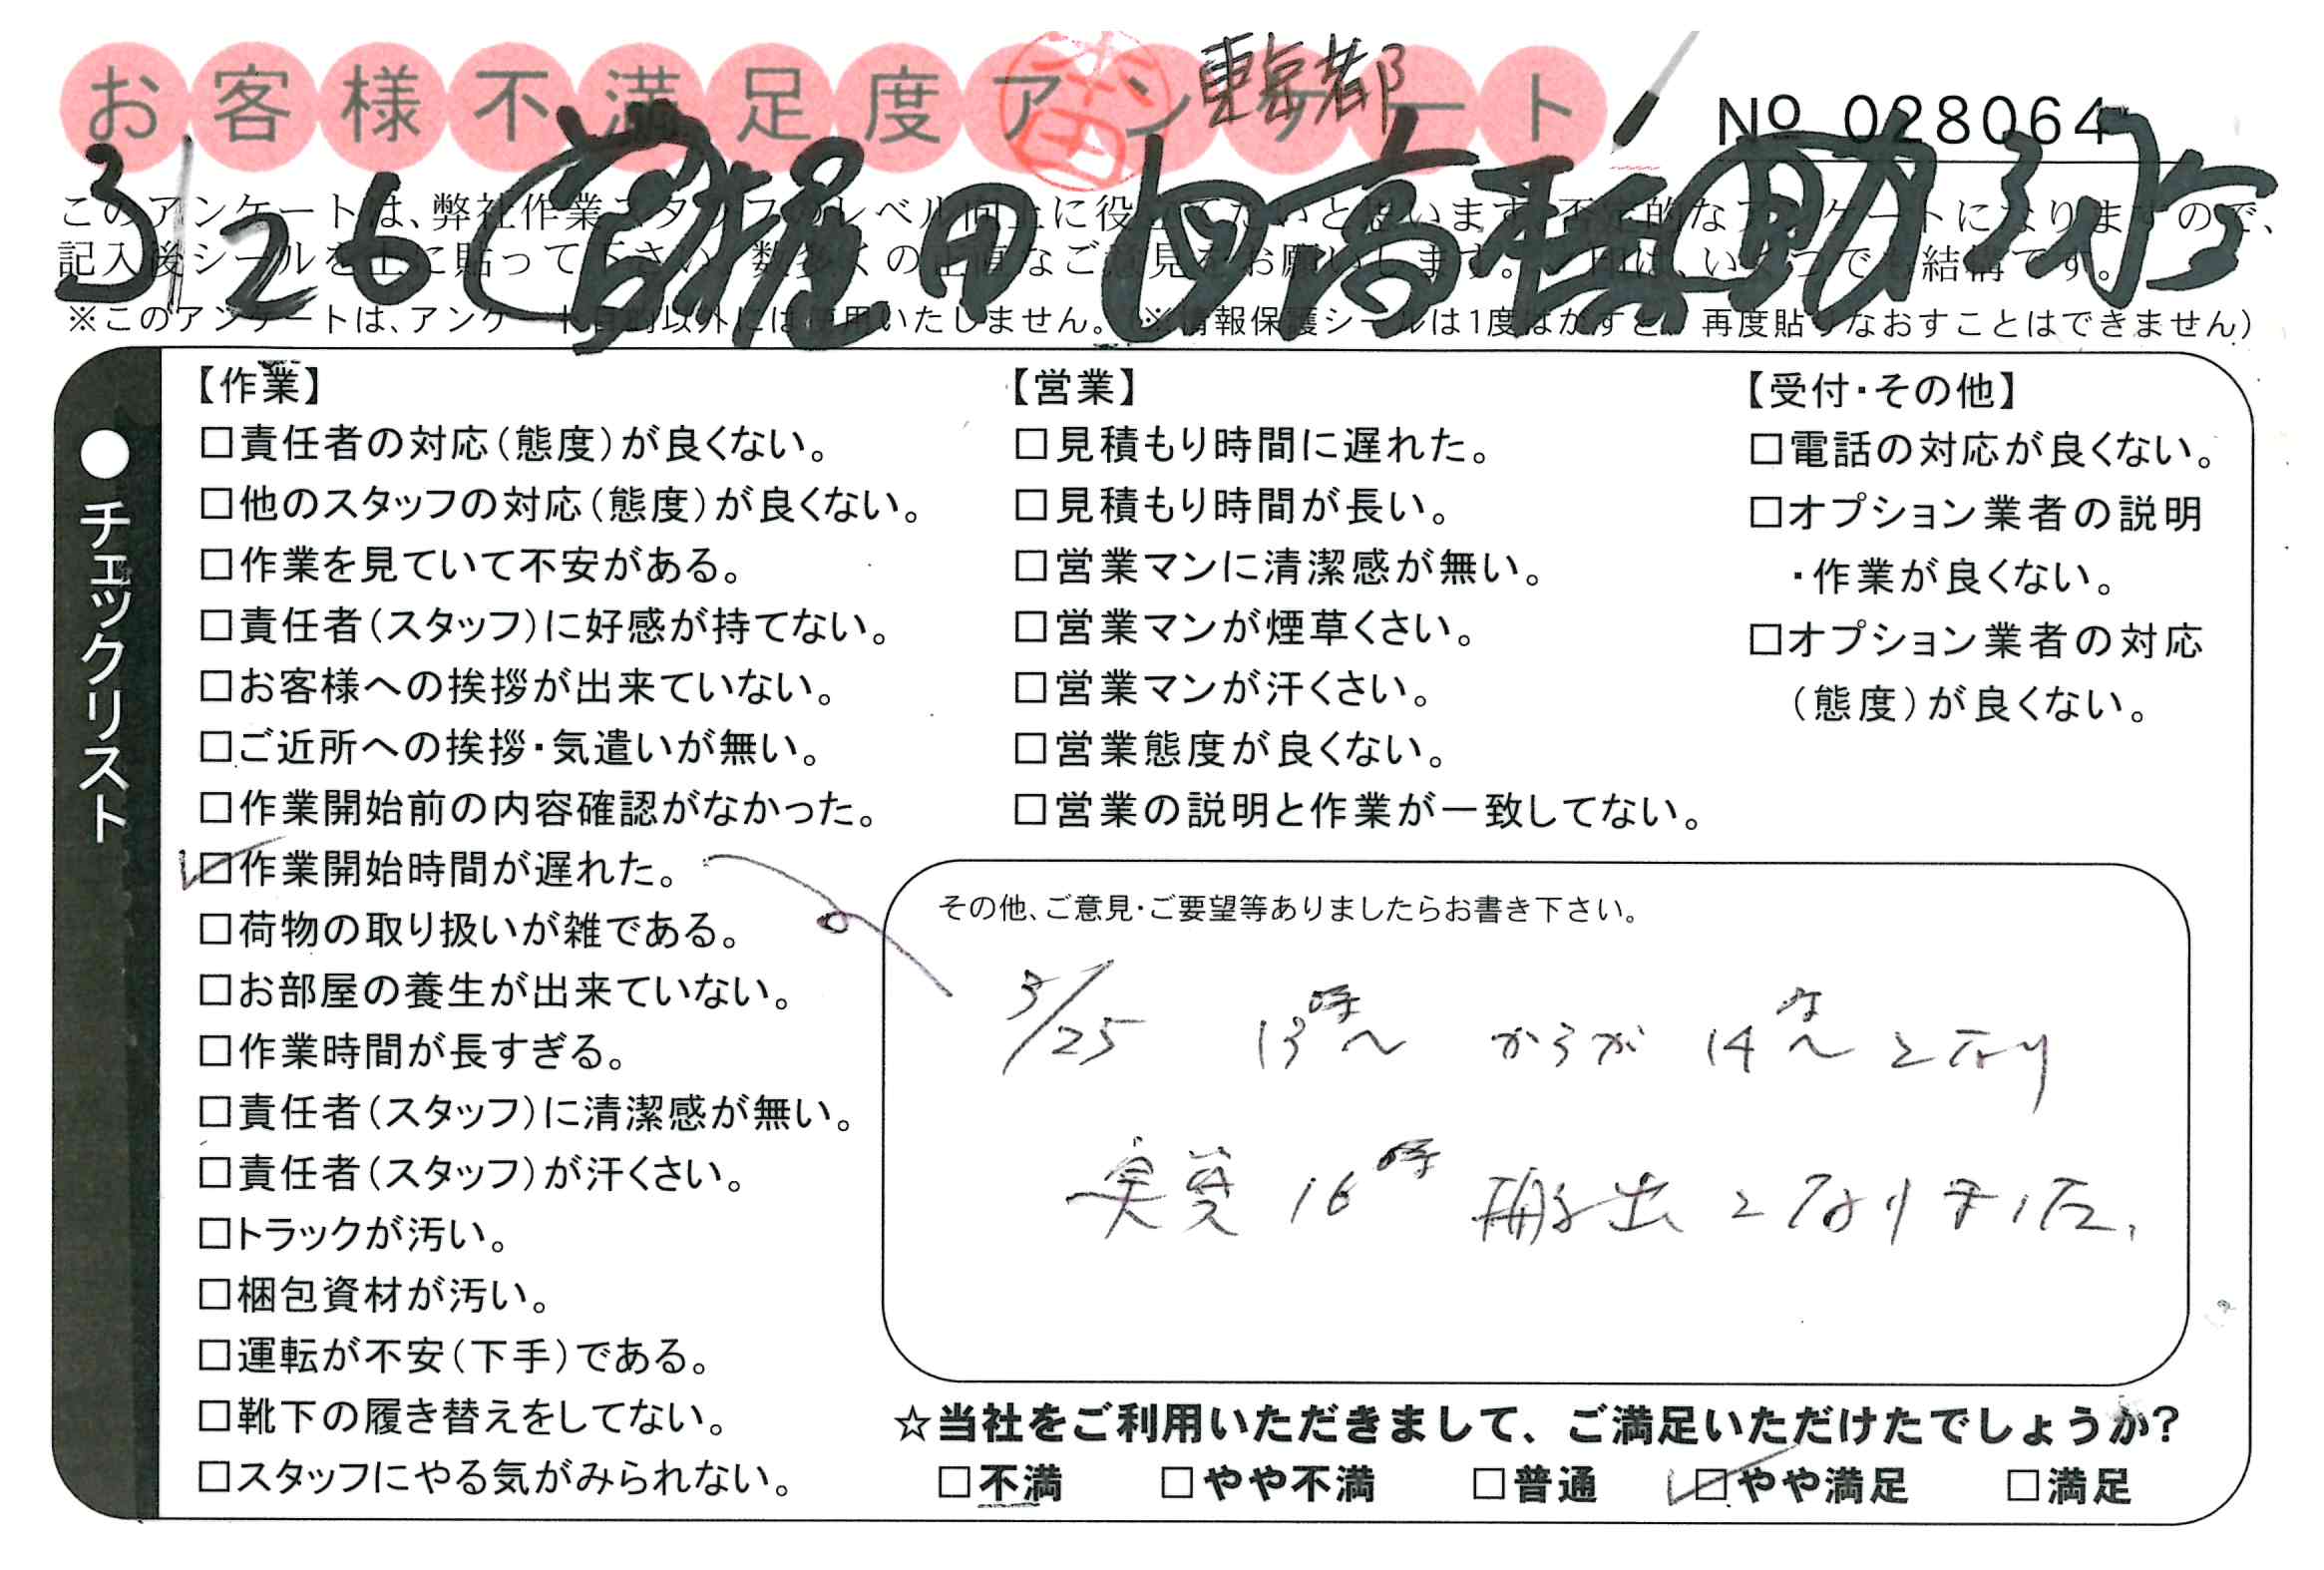 お客様不満足度アンケート
東京都
No 028064
3/26
このアンケートは、弊社作業スタッフのレベル向上に役立てたいと思います。否定的なアンケートになりますので、
記入後シールを上に貼って下さい。数多くの正直なご意見をお願いします。 印は、いくつでも結構です。
※このアンケートは、アンケート目的以外には使用いたしません。(※情報保護シールは1度はがすと、再度貼りなおすことはできません)
●チェックリスト
【作業】
□責任者の対応(態度)が良くない。
□他のスタッフの対応(態度)が良くない。
□作業を見ていて不安がある。
□責任者(スタッフ)に好感が持てない。
□お客様への挨拶が出来ていない。
□ご近所への挨拶・気遣いが無い。
□作業開始前の内容確認がなかった。
☑作業開始時間が遅れた。
□荷物の取り扱いが雑である。
□お部屋の養生が出来ていない。
□作業時間が長すぎる。
□責任者(スタッフ)に清潔感が無い。
□責任者(スタッフ)が汗くさい。
□トラックが汚い。
□梱包資材が汚い。
□運転が不安(下手)である。
□靴下の履き替えをしてない。
□スタッフにやる気がみられない。
【営業】
□見積もり時間に遅れた。
□見積もり時間が長い。
□営業マンに清潔感が無い。
□営業マンが煙草くさい。
□営業マンが汗くさい。
□営業態度が良くない。
□営業の説明と作業が一致してない。
【受付・その他】
□電話の対応が良くない。
□オプション業者の説明
・作業が良くない。
□オプション業者の対応
(態度)が良くない。
その他、ご意見・ご要望等ありましたらお書き下さい。
3/25 13時〜 からが 14時〜 となり
実質 16時 搬出 となりました。
☆当社をご利用いただきまして、ご満足いただけたでしょうか?
□不満 □やや不満 □普通 ☑やや満足 □満足